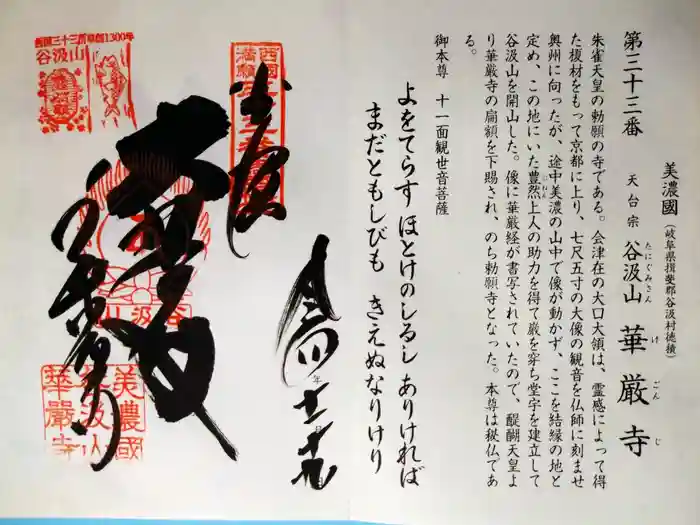 美濃國（岐阜県揖斐郡谷汲村徳積）
第三十三番　天台宗　谷汲山　華厳寺
たにぐみさん　けごんじ
朱雀天皇の勅願の寺である。会津在の大口大領は、霊感によって得
た榎材をもって京都に上り、七尺五寸の大像の観音を仏師に刻ませ
奥州に向ったが、途中美濃の山中で像が動かず、ここを結縁の地と
定め、この地にいた豊然上人の助力を得て巌を穿ち堂宇を建立して
谷汲山を開山した。像に華厳経が書写されていたので、醍醐天皇よ
り華厳寺の扁額を下賜され、のち勅願寺となった。本尊は秘仏であ
る。
御本尊　十一面観世音菩薩
よをてらす　ほとけのしるし　ありければ
まだともしびも　きえぬなりけり
奉拝
西国三十三所草創1300年
谷汲山
谷汲山
美濃國
谷汲山
華嚴寺